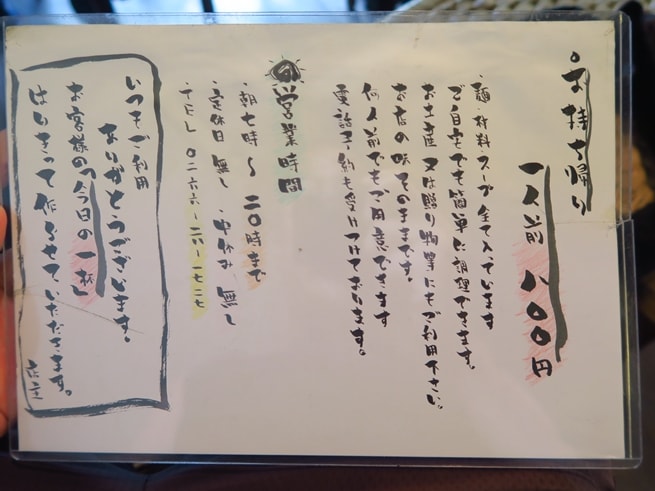 お持ち帰り
一人前 八〇〇円
・麺・材料・スープ全て入っています
ご自宅でも簡単に調理できます。
お土産又は贈り物等にもご利用下さい。
お店の味そのままです。
何人前でもご用意できます
電話予約も受けつけております。
営業時間
・朝七時〜二〇時まで
・定休日 無し 中休み 無し
・TEL 〇二六六-二八-一七二七
いつもご利用
ありがとうございます。
お客様の「今日の一杯」
はりきって作らせていただきます。
店主